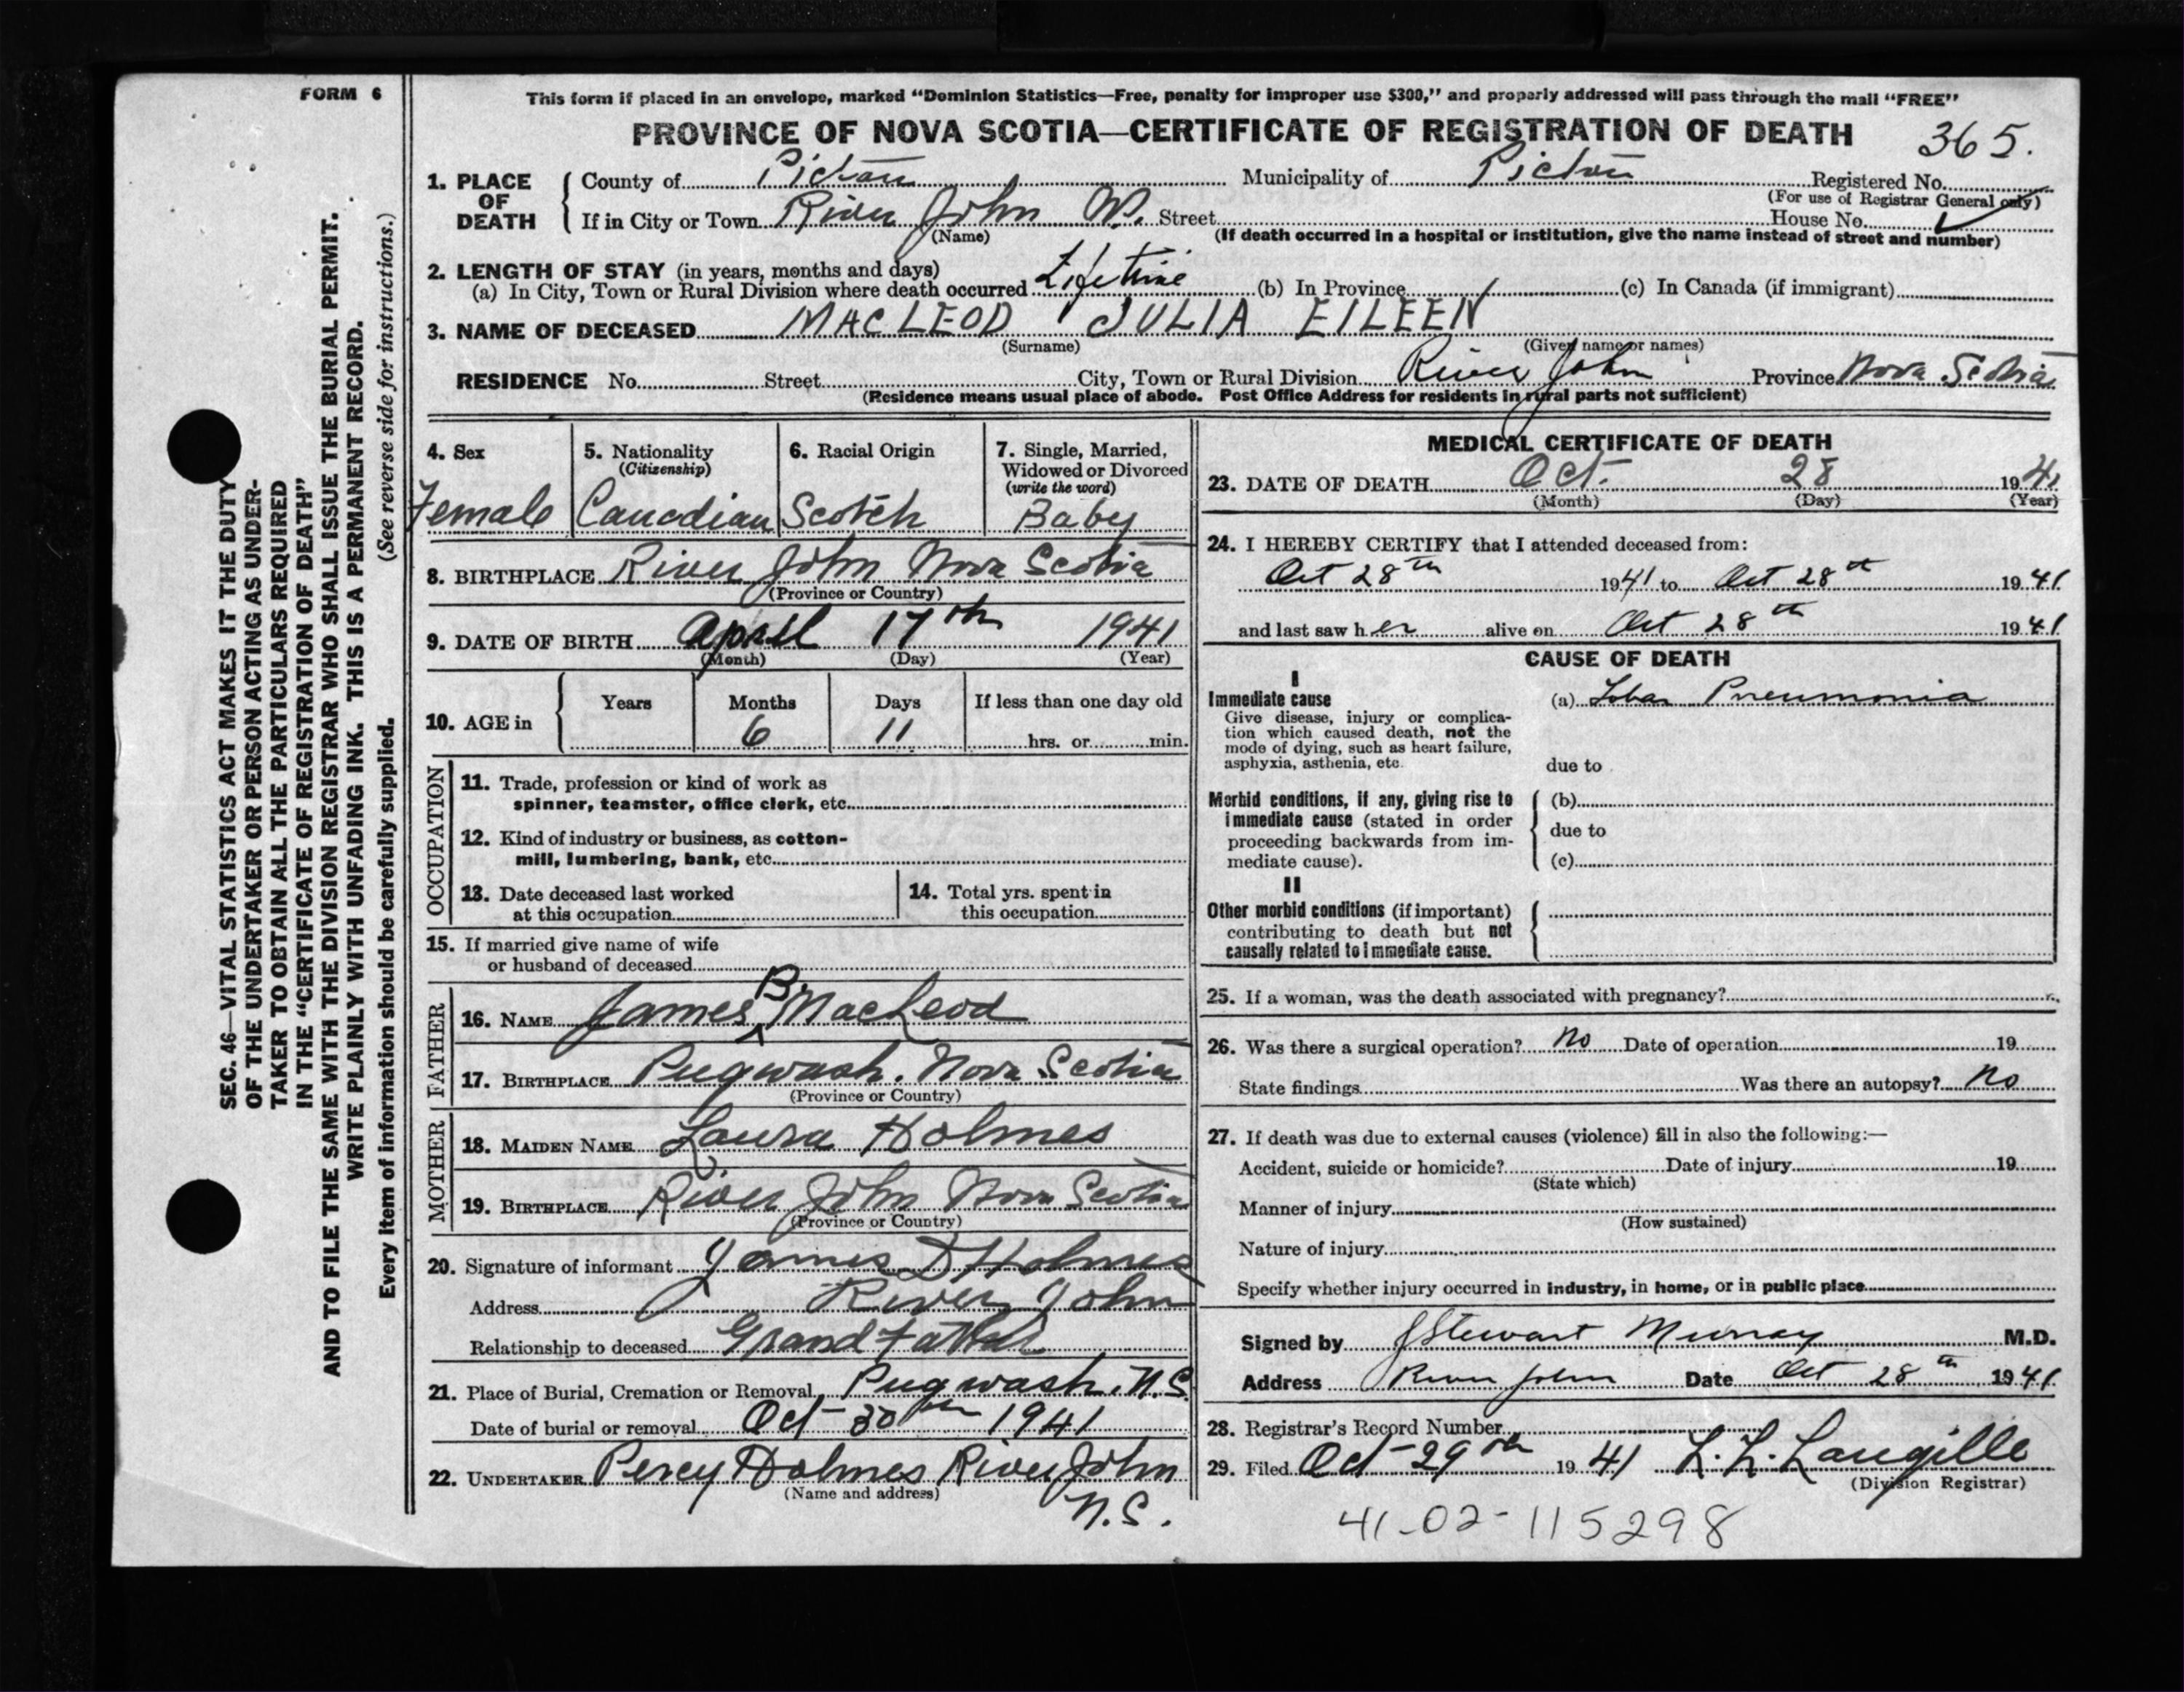 FORM 6
This form if placed in an envelope, marked "Dominion Statistics—Free, penalty for improper use $300," and properly addressed will pass through the mail "FREE"
PROVINCE OF NOVA SCOTIA—CERTIFICATE OF REGISTRATION OF DEATH 365.
1. PLACE OF DEATH County of Pictou Municipality of Pictou Registered No.
(For use of Registrar General only)
If in City or Town River John W. Street House No.
(Name) (If death occurred in a hospital or institution, give the name instead of street and number)
2. LENGTH OF STAY (in years, months and days)
(a) In City, Town or Rural Division where death occurred Lifetime (b) In Province (c) In Canada (if immigrant)
3. NAME OF DECEASED MACLEOD JULIA EILEEN
(Surname) (Given name or names)
RESIDENCE No. Street City, Town or Rural Division River John Province Nova Scotia
(Residence means usual place of abode. Post Office Address for residents in rural parts not sufficient)
4. Sex
Female
5. Nationality
(Citizenship)
Canadian
6. Racial Origin
Scotch
7. Single, Married,
Widowed or Divorced
(write the word)
Baby
8. BIRTHPLACE River John Nova Scotia
(Province or Country)
9. DATE OF BIRTH April 17th 1941
(Month) (Day) (Year)
10. AGE in Years Months Days If less than one day old
6 11 hrs. or min.
OCCUPATION
11. Trade, profession or kind of work as
spinner, teamster, office clerk, etc.
12. Kind of industry or business, as cotton-
mill, lumbering, bank, etc.
13. Date deceased last worked
at this occupation
14. Total yrs. spent in
this occupation
15. If married give name of wife
or husband of deceased
FATHER
16. NAME James B. MacLeod
17. BIRTHPLACE Pugwash. Nova Scotia
(Province or Country)
MOTHER
18. MAIDEN NAME Laura Holmes
19. BIRTHPLACE River John Nova Scotia
(Province or Country)
20. Signature of informant James D Holmes
Address River John
Relationship to deceased Grandfather
21. Place of Burial, Cremation or Removal Pugwash. N.S.
Date of burial or removal Oct 30th 1941
22. UNDERTAKER Percy Holmes River John
(Name and address)
N.S.
MEDICAL CERTIFICATE OF DEATH
23. DATE OF DEATH Oct. 28 1941
(Month) (Day) (Year)
24. I HEREBY CERTIFY that I attended deceased from:
Oct 28th 1941 to Oct 28th 1941
and last saw her alive on Oct 28th 1941
CAUSE OF DEATH
I
Immediate cause
Give disease, injury or complica-
tion which caused death, not the
mode of dying, such as heart failure,
asphyxia, asthenia, etc.
(a) Lobar Pneumonia
due to
Morbid conditions, if any, giving rise to
immediate cause (stated in order
proceeding backwards from im-
mediate cause).
(b)
due to
(c)
II
Other morbid conditions (if important)
contributing to death but not
causally related to immediate cause.
25. If a woman, was the death associated with pregnancy?
26. Was there a surgical operation? No Date of operation 19
State findings Was there an autopsy? No
27. If death was due to external causes (violence) fill in also the following:—
Accident, suicide or homicide? Date of injury 19
(State which)
Manner of injury
(How sustained)
Nature of injury
Specify whether injury occurred in industry, in home, or in public place
Signed by J Stewart Murray M.D.
Address River John Date Oct 28th 1941
28. Registrar's Record Number
29. Filed Oct 29th 1941 L. L. Langille
(Division Registrar)
41-02-115298
SEC. 46—VITAL STATISTICS ACT MAKES IT THE DUTY
OF THE UNDERTAKER OR PERSON ACTING AS UNDER-
TAKER TO OBTAIN ALL THE PARTICULARS REQUIRED
IN THE "CERTIFICATE OF REGISTRATION OF DEATH"
AND TO FILE THE SAME WITH THE DIVISION REGISTRAR WHO SHALL ISSUE THE BURIAL PERMIT.
WRITE PLAINLY WITH UNFADING INK. THIS IS A PERMANENT RECORD.
Every item of information should be carefully supplied. (See reverse side for instructions.)